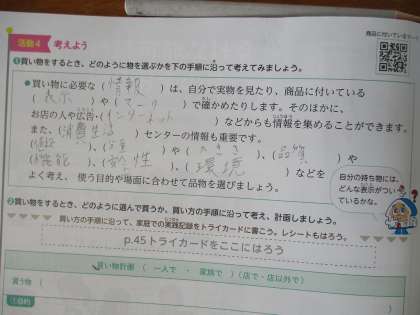 商品に付いているマーク
活動4 考えよう
❶買い物をするとき、どのように物を選ぶかを下の手順に沿って考えてみましょう。
●買い物に必要な(情報)は、自分で実物を見たり、商品に付いている
(表示)や(マーク)で確かめたりします。そのほかに、
お店の人や広告、(インターネット)などからも情報を集めることができます。
また、(消費生活)センターの情報も重要です。
(値段)、(量)や(大きさ)、(品質)や
(機能)、(安全性)、(環境)などを
よく考え、使う目的や場面に合わせて品物を選びましょう。
自分の持ち物には、
どんな表示がつい
ているかな。
❷買い物をするとき、どのように選んで買うか、買い方の手順に沿って考え、計画しましょう。
買い方の手順に沿って、家庭での実践記録をトライカードに書こう。レシートもはろう。
p.45トライカードをここにはろう
買い物計画 ( 一人で ・ 家族で )(店で・店以外で)
買う物 (
①目的